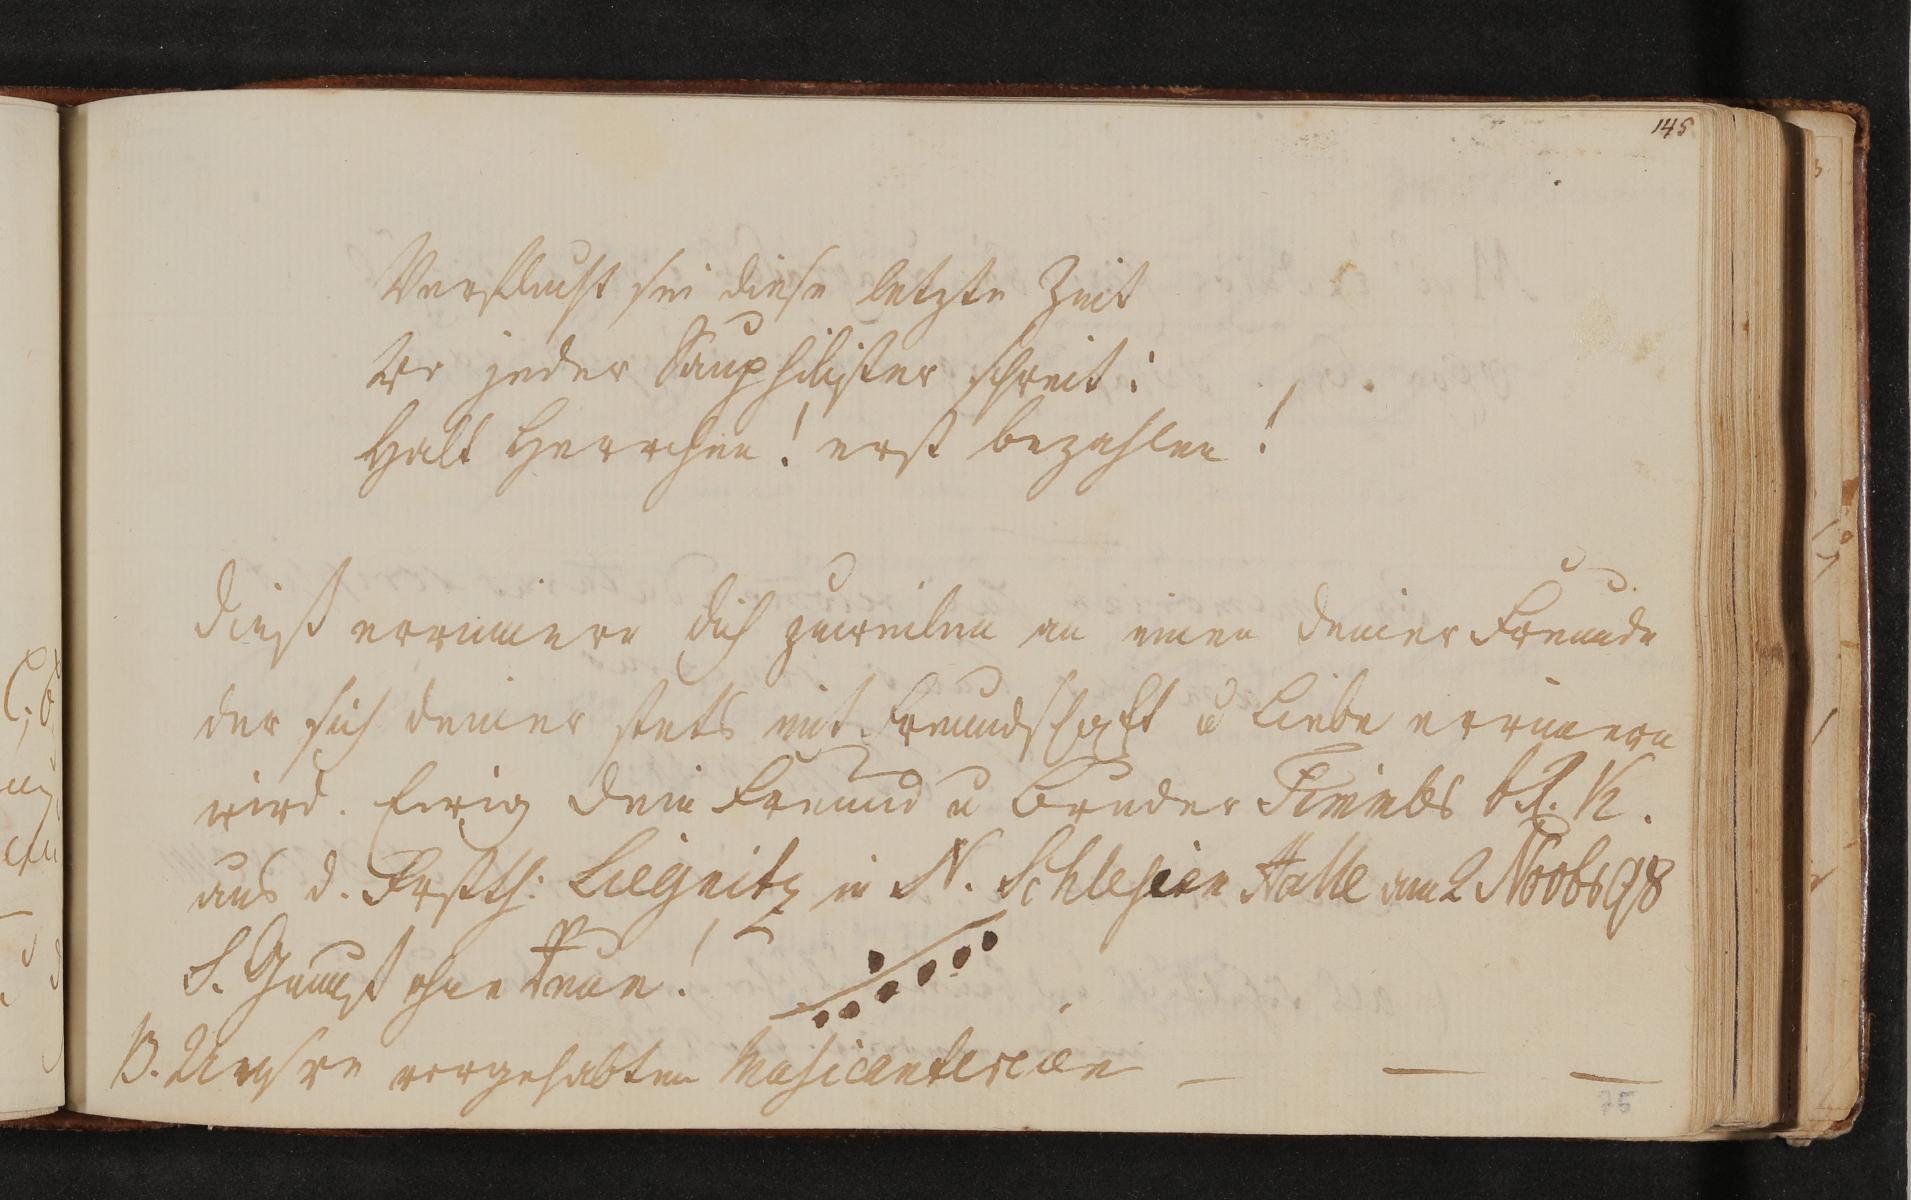 145
Verflucht sei diese letzte Zeit
Wo jeder Sauphilister schreit:
Halt Herrchen! erst bezahlen!
Dieß errinnere dich zuweilen an einen deiner Freunde
der sich deiner stets mit Freundschaft u Liebe errinnern
wird. Ewig dein Freund u Bruder
aus d. Frstth: Liegnitz in N. Schlesien Halle am 2 Novbs 98
S. ohne
Unsre vorgehabten Musicantereien
75